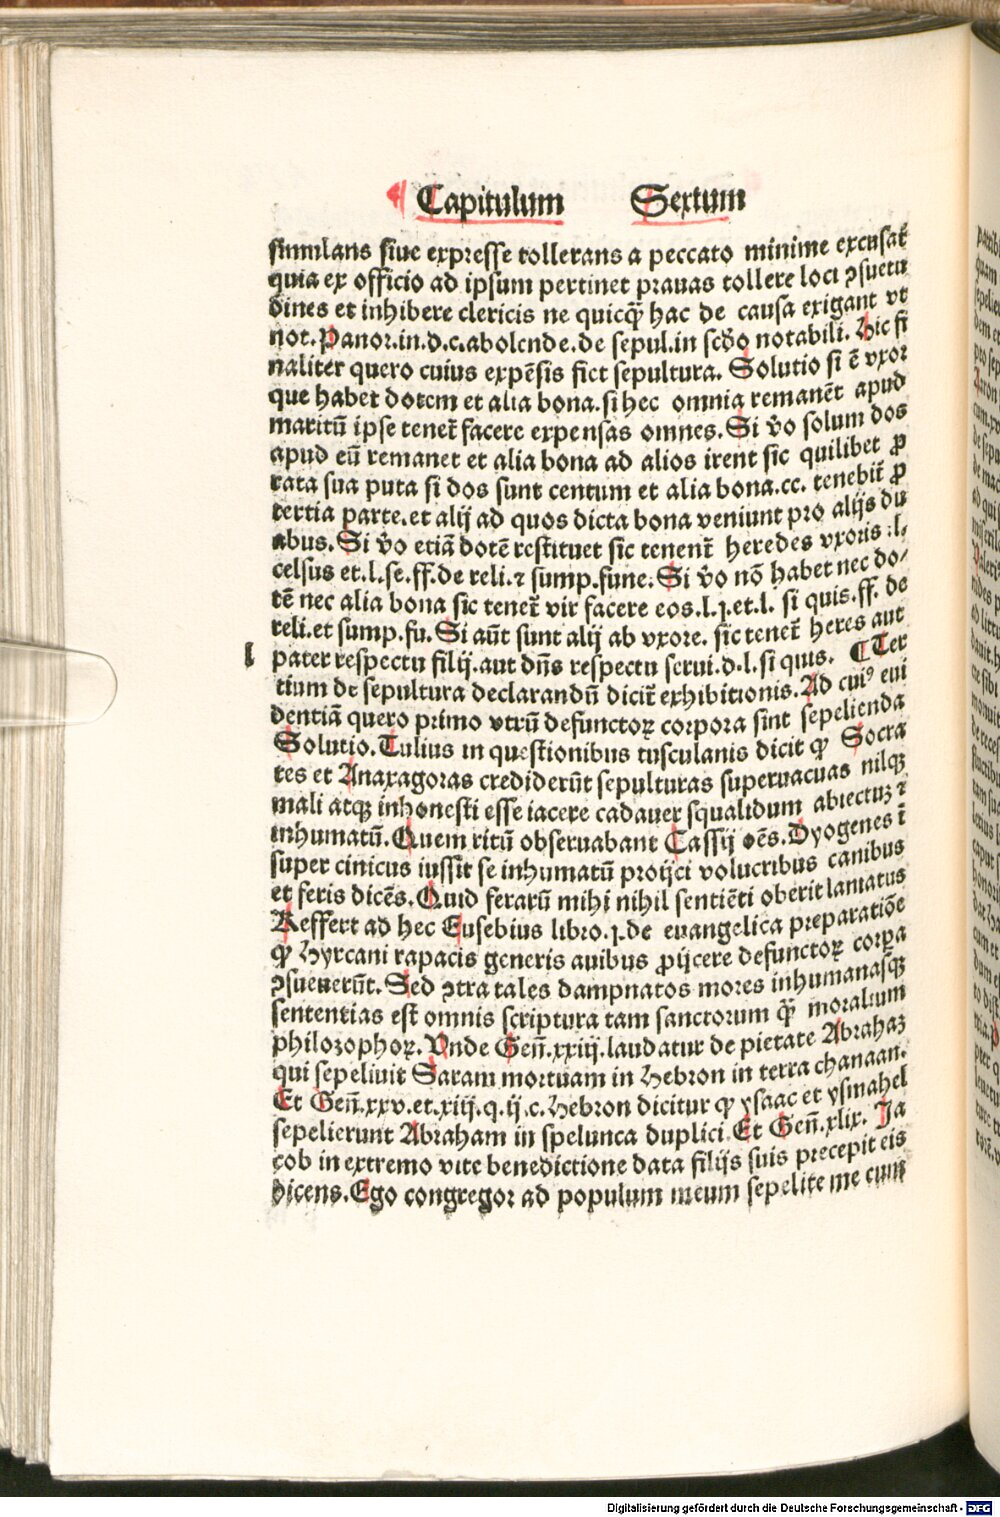 Capitulum Sextum
simulans siue expresse tollerans a peccato minime excusat᷑
quia ex officio ad ipsum pertinet prauas tollere loci ꝯsuetu
dines et inhibere clericis ne quicqꝫ hac de causa exigant vt
not. Panor. in. d. c. abolende. de sepul. in scďo notabili. Hic fi
naliter quero cuius expēsis fiet sepultura. Solutio si ē vxor
que habet dotem et alia bona. si hec omnia remanēt apud
maritū ipse tenet᷑ facere expensas omnes. Si v̊o solum dos
apud eū remanet et alia bona ad alios irent sic quilibet ꝓ
rata sua puta si dos sunt centum et alia bona. cc. tenebit᷑ ꝓ
tertia parte. et alij ad quos dicta bona veniunt pro alijs du
abus. Si v̊o etiā dotē restituet sic tenent᷑ heredes vxoris. l.
celsus et. l. se. ff. de reli. ⁊ sump. fune. Si v̊o nō habet nec do/
tē nec alia bona sic tenet᷑ vir facere eos. l. j. et. l. si quis. ff. de
reli. et sump. fu. Si aūt sunt alij ab vxore. sic tenet᷑ heres aut
l pater respectu filij. aut dn̄s respectu serui. d. l. si quis. ¶ Ter
tium de sepultura declarandū dicit᷑ exhibitionis. Ad cuiꝰ eui
dentiā quero primo vtrū defunctoꝝ corpora sint sepelienda
Solutio. Tulius in questionibus tusculanis dicit ꝙ Socra
tes et Anaxagoras crediderūt sepulturas superuacuas nilqꝫ
mali atqꝫ inhonesti esse iacere cadauer squalidum abiectuꝫ ⁊
inhumatū. Quem ritū obseruabant Cassij oēs. Dyogenes ī
super cinicus iussit se inhumatū proijci volucribus canibus
et feris dicēs. Quid ferarū mihi nihil sentiēti oberit laniatus
Reffert ad hec Eusebius libro. j. de euangelica preparatiōe
ꝙ Hyrcani rapacis generis auibus ꝓijcere defunctoꝝ corꝑa
ꝯsueuerūt. Sed ꝯtra tales dampnatos mores inhumanasqꝫ
sententias est omnis scriptura tam sanctorum qꝫ̄ moralium
philozophoꝝ. Vnde Geñ. xxiij. laudatur de pietate Abrahaꝫ
qui sepeliuit Saram mortuam in Hebron in terra chanaan.
Et Geñ. xxv. et. xiij. q. ij. c. Hebron dicitur ꝙ ysaac et ysmahel
sepelierunt Abraham in spelunca duplici. Et Geñ. xlix. Ja
cob in extremo vite benedictione data filijs suis precepit eis
dicens. Ego congregor ad populum meum sepelite me cum
Digitalisierung gefördert durch die Deutsche Forschungsgemeinschaft - DFG